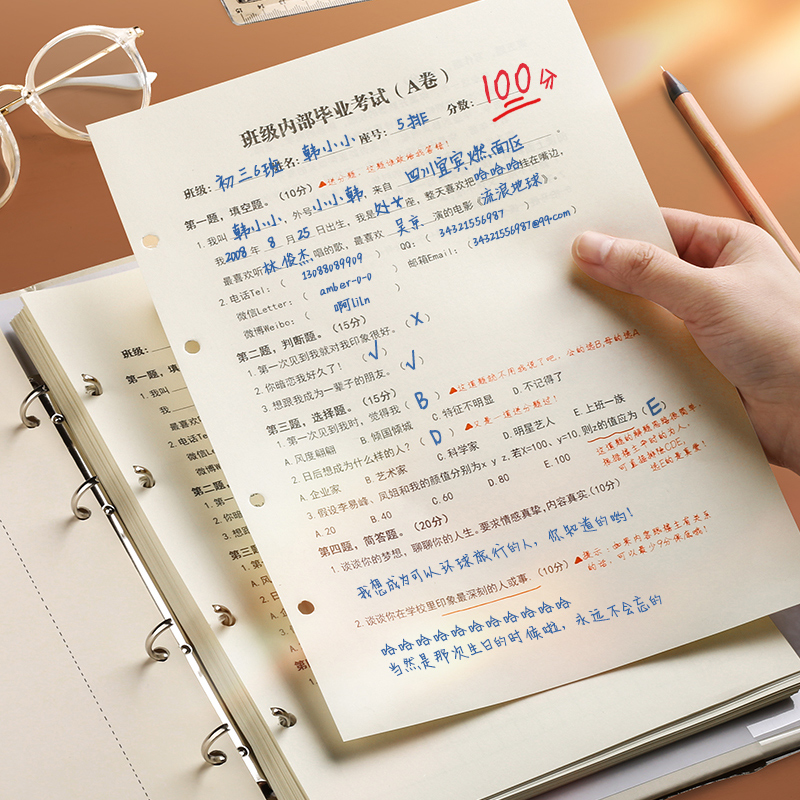 班级内部毕业考试（A卷）
班级：初三6班 姓名：韩小小 座号：5排E 分数：100分
第一题，填空题。（10分）
1. 我叫韩小小，外号小小韩，来自四川宜宾燃面区。
我2008年8月25日出生，我是处女座，整天喜欢把哈哈哈挂在嘴边，
最喜欢听林俊杰唱的歌，最喜欢吴京演的电影《流浪地球》。
2. 电话Tel：（13088089909） QQ：（34321556987）
微信Letter：（amber-0-0） 邮箱Email：（34321556987@99.com）
微博Weibo：（啊liln）
第二题，判断题。（15分）
1. 第一次见到我就对我印象很好。（X）
2. 你暗恋我好久了！（√）
3. 想跟我成为一辈子的朋友。（√）
第三题，选择题。（15分）
1. 第一次见到我时，觉得我（B）
A. 风度翩翩 B. 倾国倾城 C. 特征不明显 D. 不记得了
2. 日后想成为什么样的人？（D）
A. 企业家 B. 艺术家 C. 科学家 D. 明星艺人 E. 上班一族
3. 假设李易峰、凤姐和我的颜值分别为x y z，若X=100，y=10，则z的值应为（E）
A. 20 B. 40 C. 60 D. 80 E. 100
第四题，简答题。（20分）
1. 谈谈你的梦想，聊聊你的人生。要求情感真挚，内容真实（10分）
我想成为可以环球旅行的人，你知道的哟！
2. 谈谈你在学校里印象最深刻的人或事.（10分）
▲提示：如果内容跟楼主有关系
的话，可以最少9分保底哦！
哈哈哈哈哈哈哈哈哈哈哈
当然是那次生日的时候啦，永远不会忘的
班级：
第一题，填
1. 我叫
我
最喜欢
2. 电话
微信
微博W